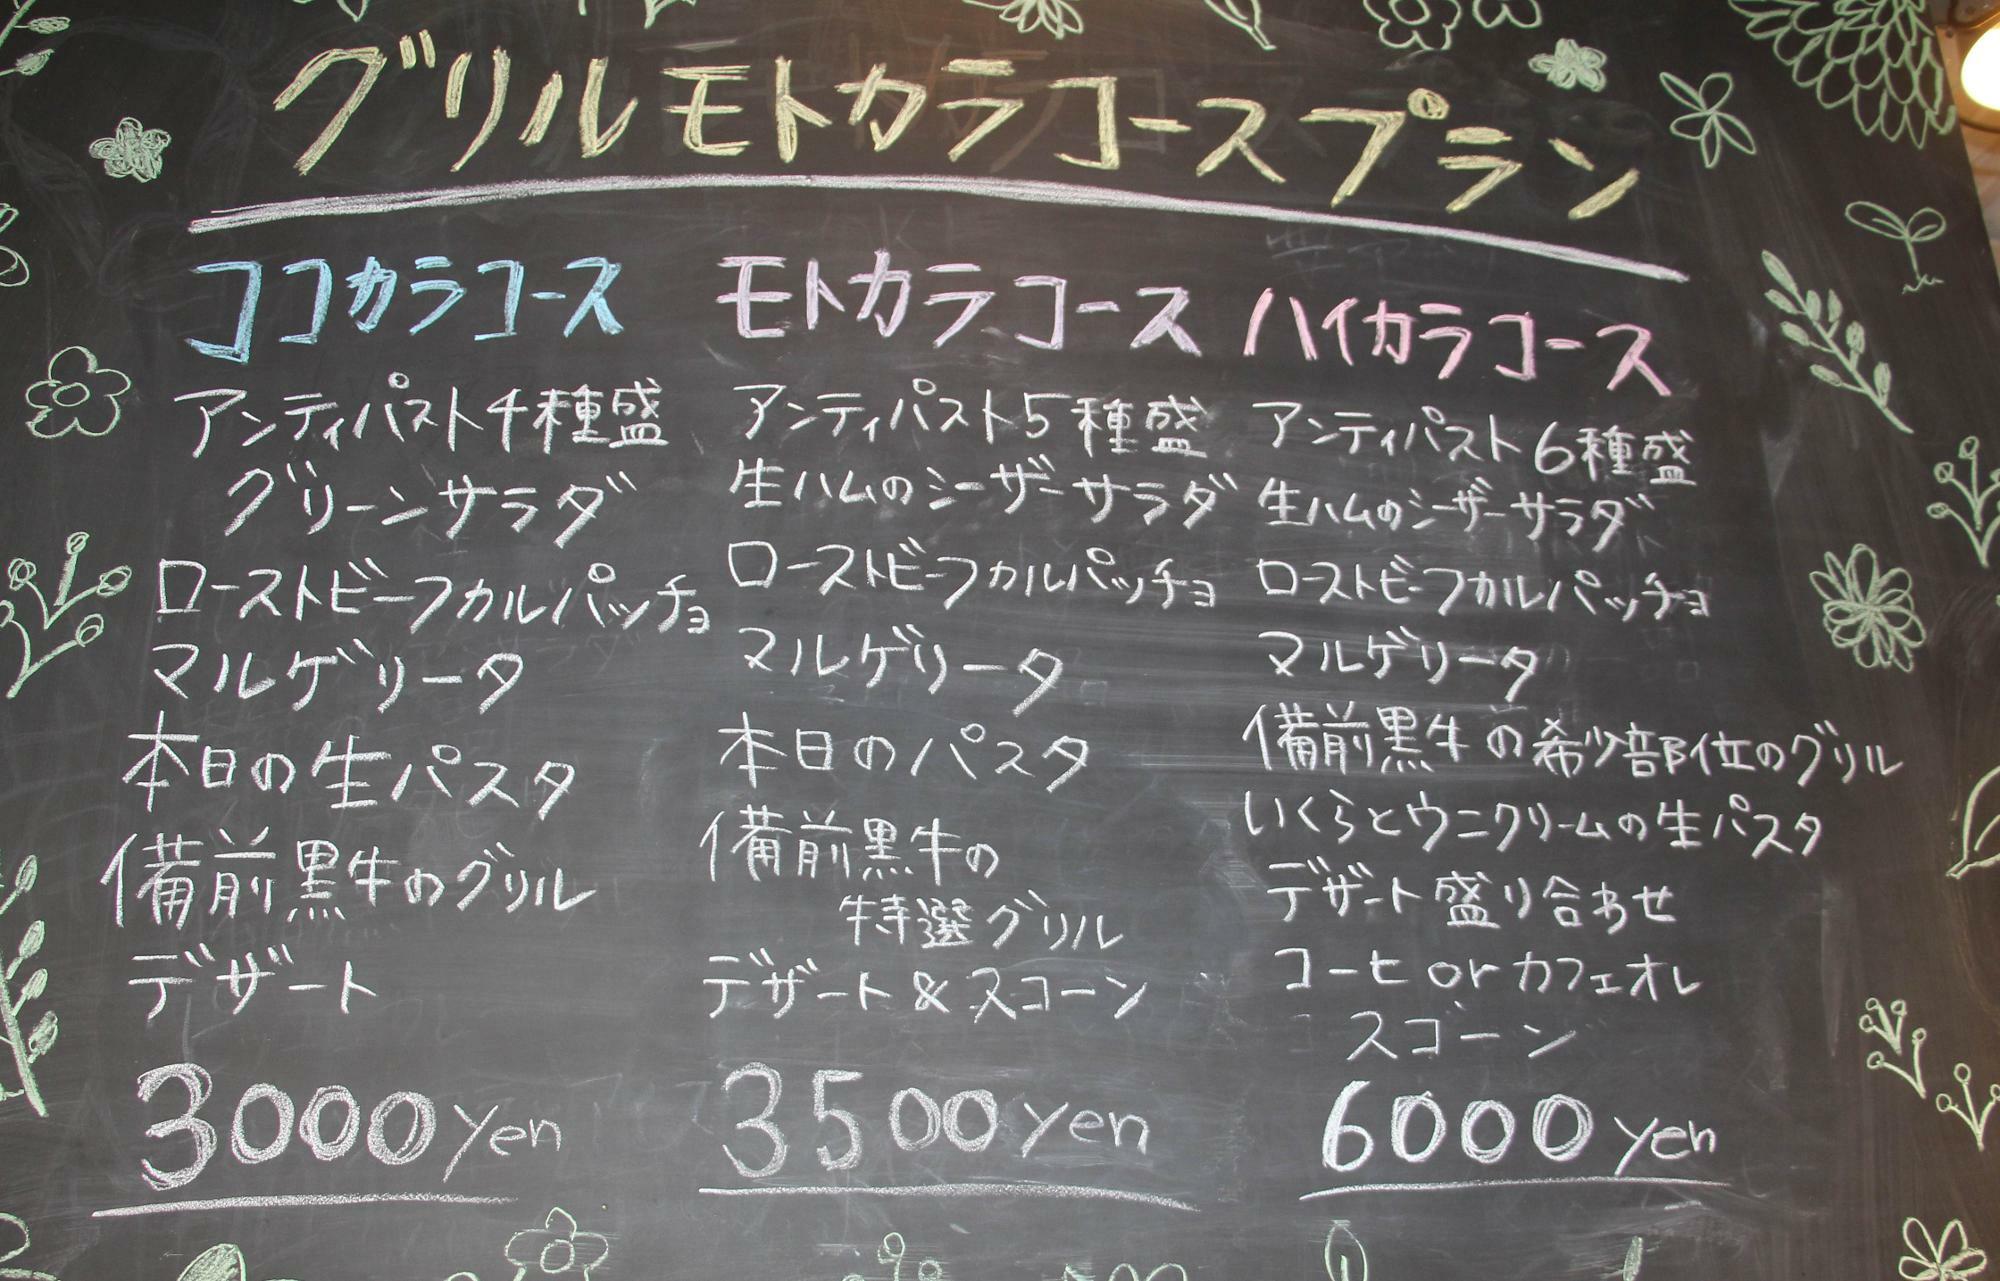 グリルモトカラコースプラン
ココカラコース
アンティパスト4種盛
グリーンサラダ
ローストビーフカルパッチョ
マルゲリータ
本日の生パスタ
備前黒牛のグリル
デザート
3000yen
モトカラコース
アンティパスト5種盛
生ハムのシーザーサラダ
ローストビーフカルパッチョ
マルゲリータ
本日のパスタ
備前黒牛の
特選グリル
デザート&スコーン
3500yen
ハイカラコース
アンティパスト6種盛
生ハムのシーザーサラダ
ローストビーフカルパッチョ
マルゲリータ
備前黒牛の希少部位のグリル
いくらとウニクリームの生パスタ
デザート盛り合わせ
コーヒorカフェオレ
スゴーン
6000yen